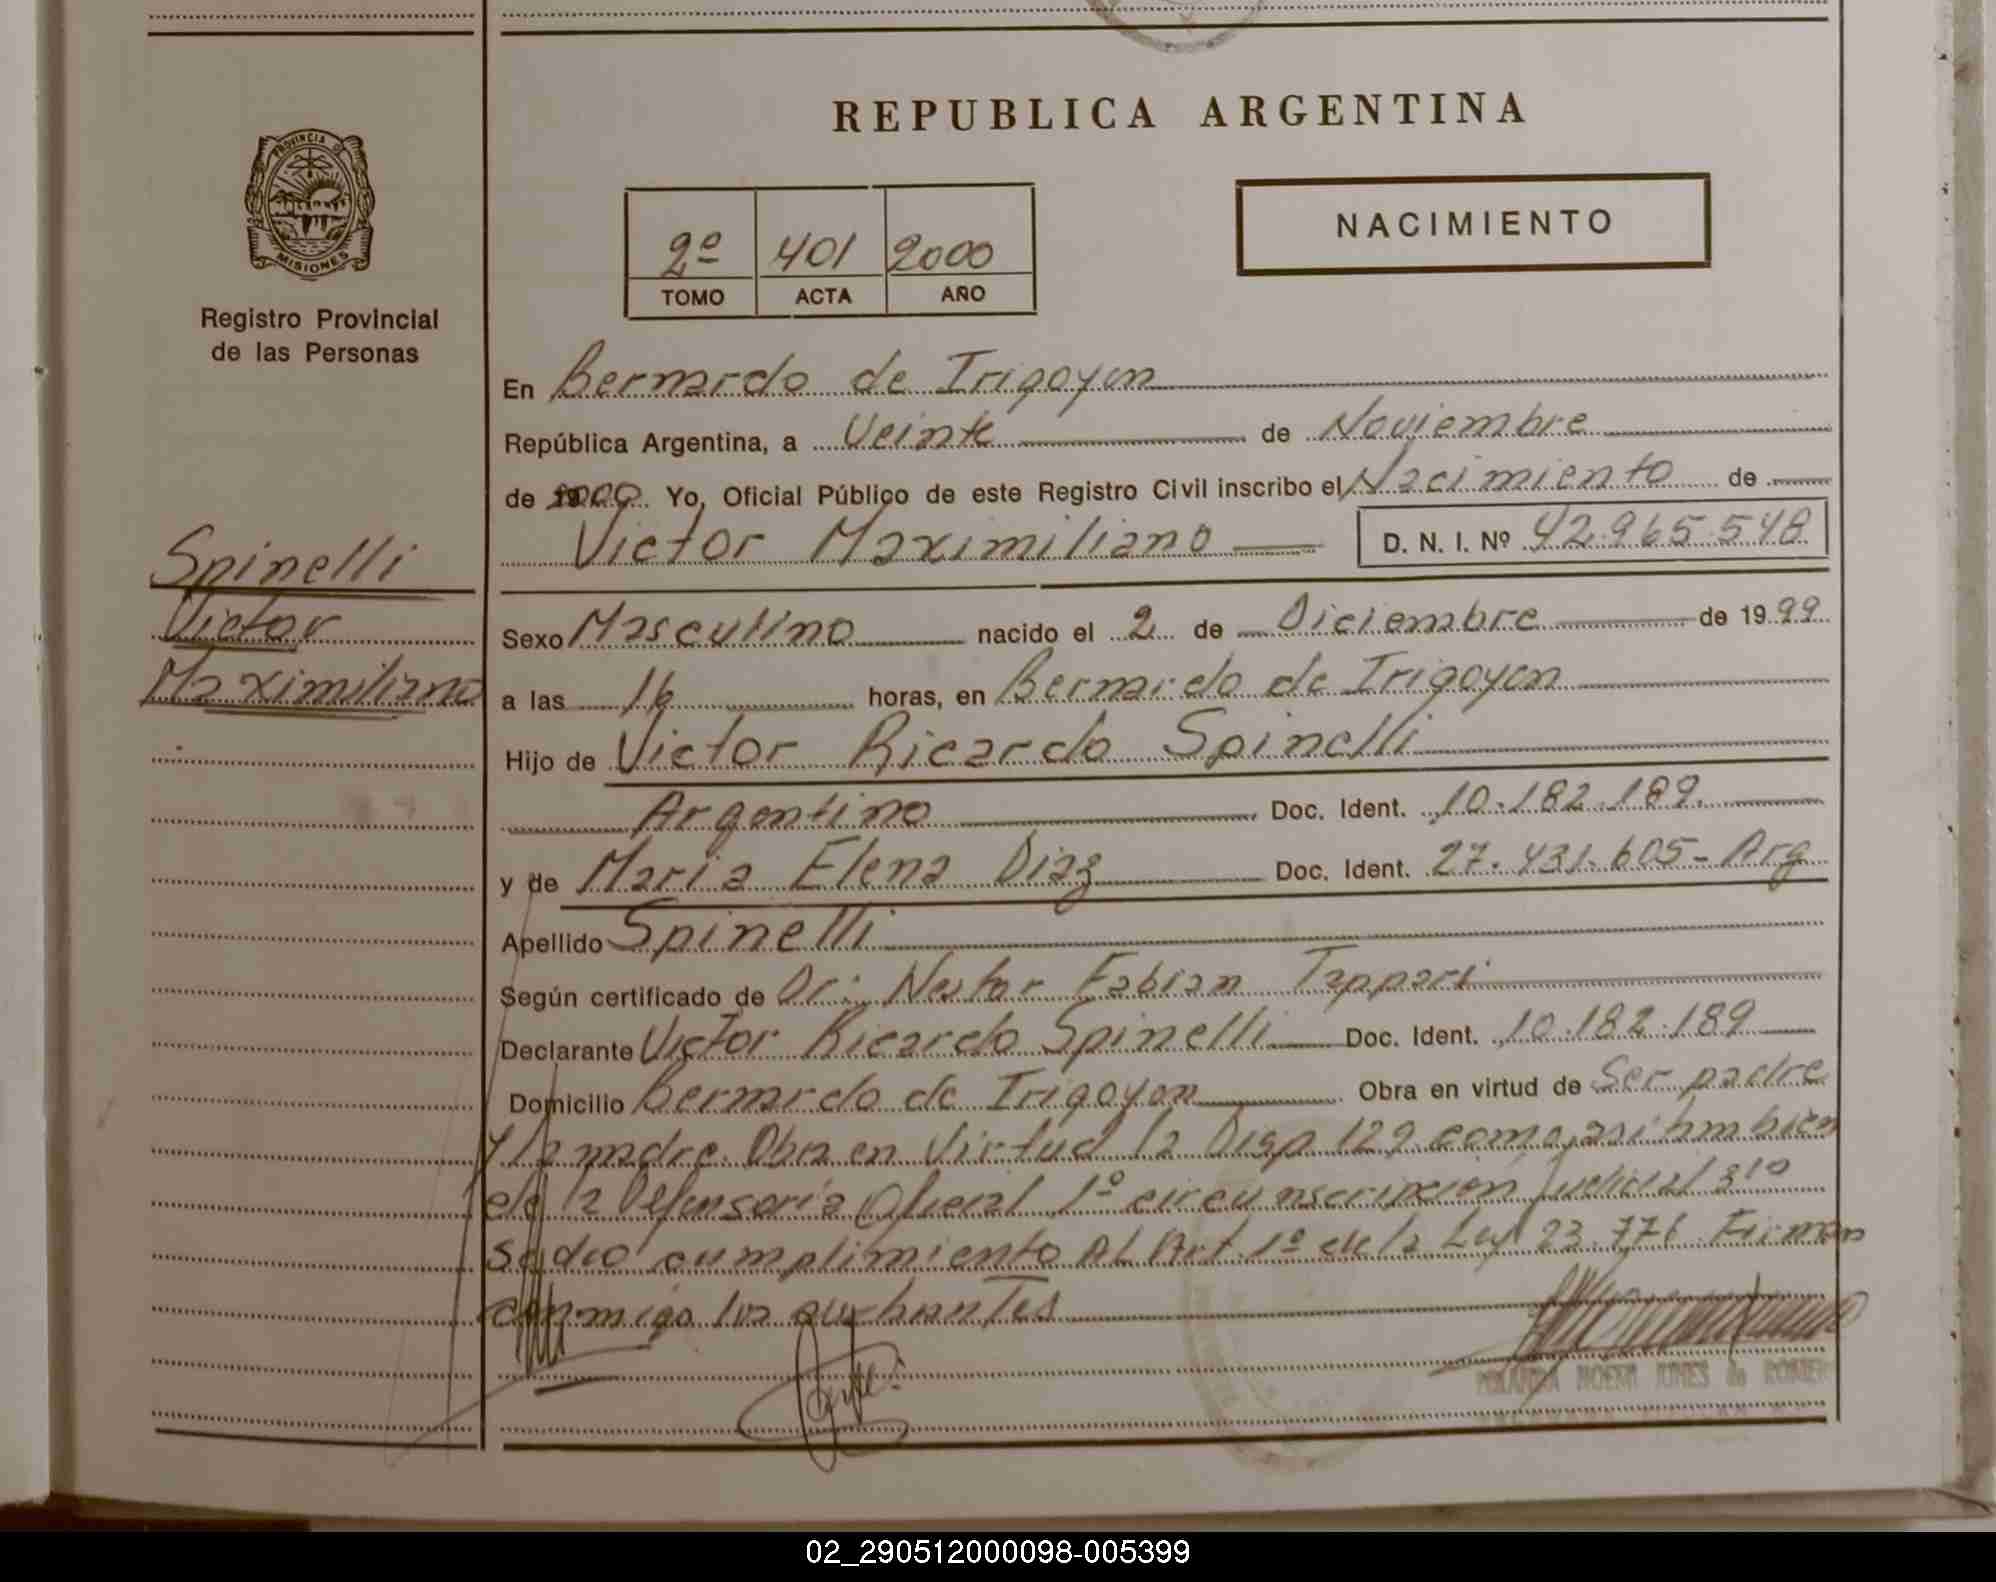 REPUBLICA ARGENTINA
PROVINCIA DE
MISIONES
Registro Provincial
de las Personas
NACIMIENTO
2º 401 2000
TOMO ACTA AÑO
En Bernardo de Irigoyen
República Argentina, a Veinte de Noviembre
de 2000. Yo, Oficial Público de este Registro Civil inscribo el Nacimiento de
Victor Maximiliano D. N. I. Nº 42.965.548
Spinelli
Victor
Maximiliano
Sexo Masculino nacido el 2 de Diciembre de 1999
a las 16 horas, en Bernardo de Irigoyen
Hijo de Victor Ricardo Spinelli
Argentino Doc. Ident. 10.182.189.
y de Maria Elena Diaz Doc. Ident. 27.431.605 - Arg
Apellido Spinelli
Según certificado de Dr: Nestor Fabian Tappari
Declarante Victor Ricardo Spinelli Doc. Ident. 10.182.189
Domicilio Bernardo de Irigoyen Obra en virtud de Ser padre
y la madre. Obra en Virtud la Disp 129 como asi tambien
de la Defensoria Oficial 1º circunscripcion Judicial 3ra
se dio cumplimiento AL Art. 1º de la Ley 23.776 Firman
conmigo los
02_290512000098-005399